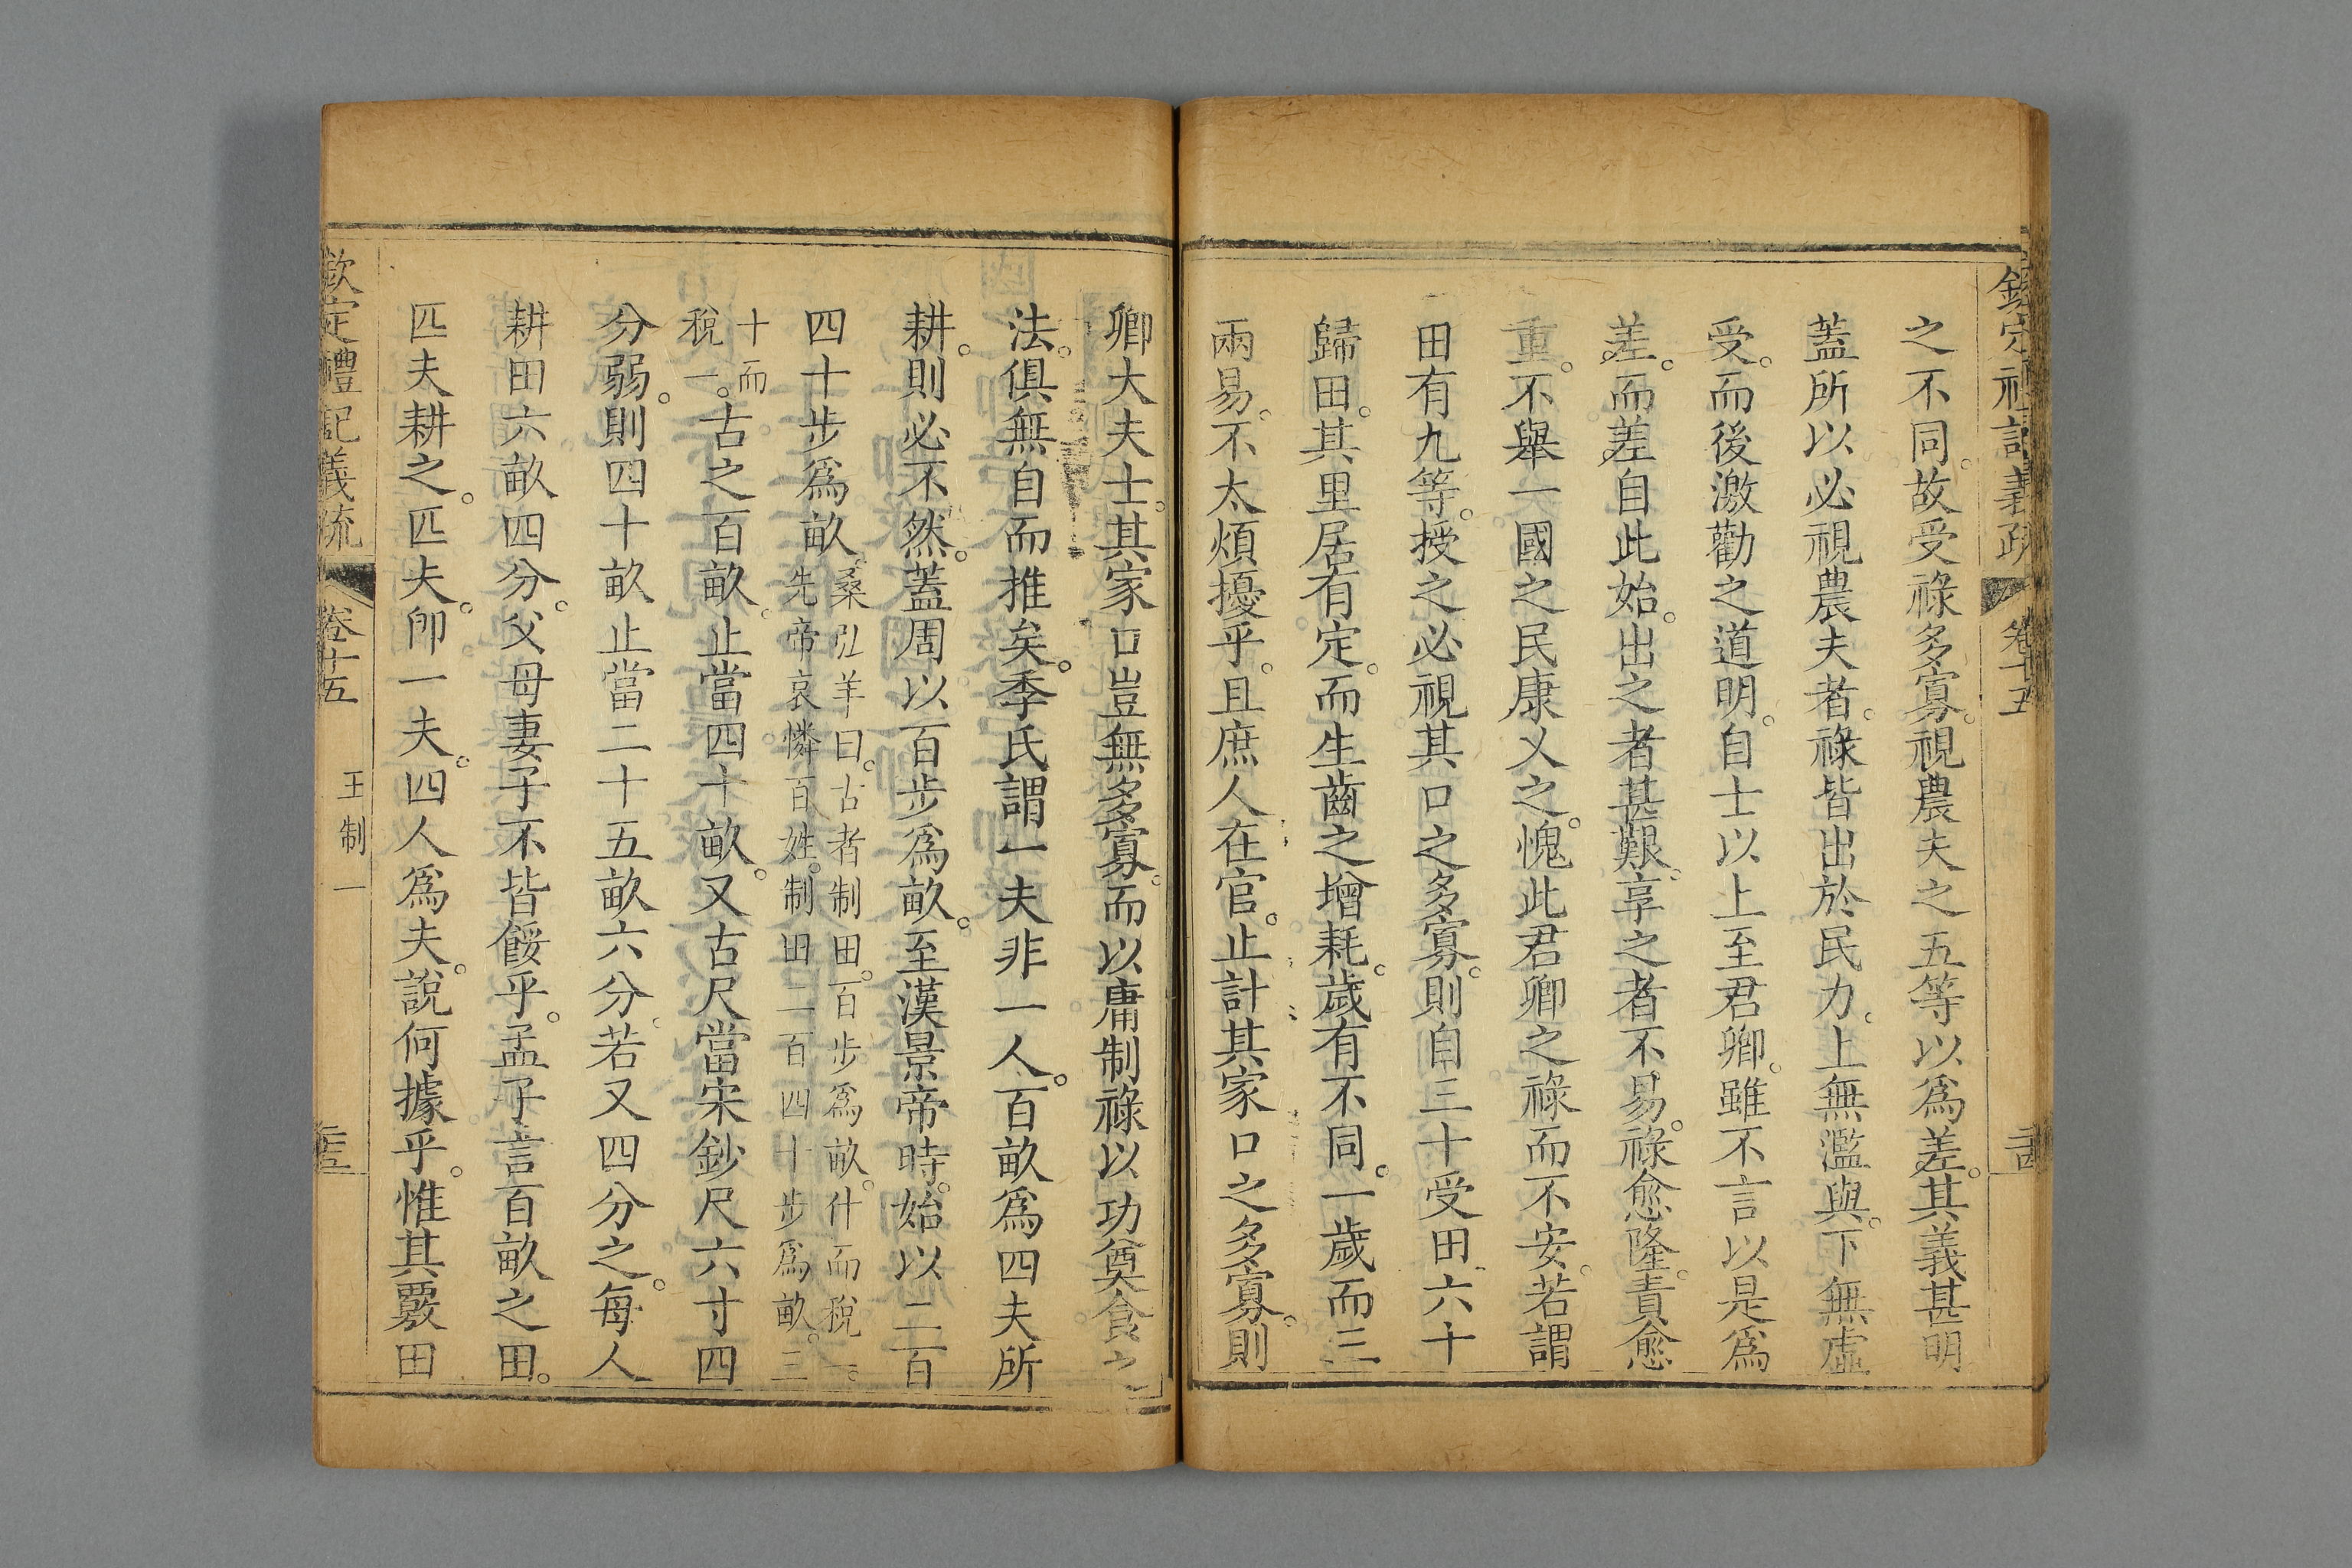 欽定禮記義疏 卷十五
之不同。故受祿多寡。視農夫之五等以爲差。其義甚明
蓋所以必視農夫者。祿皆出於民力。上無濫與。下無虛
受。而後激勸之道明。自士以上至君卿。雖不言以是爲
差。而差自此始。出之者甚艱。享之者不易。祿愈隆。責愈
重。不舉一國之民康乂之。愧此君卿之祿而不安。若謂
田有九等。授之必視其口之多寡。則自三十受田六十
歸田。其里居有定。而生齒之增耗。歲有不同。一歲而三
兩易。不太煩擾乎。且庶人在官。止計其家口之多寡。則
卿大夫士。其家口豈無多寡。而以庸制祿以功奠食之
法。俱無自而推矣。季氏謂一夫非一人。百畝爲四夫所
耕。則必不然。蓋周以百步爲畝。至漢景帝時。始以二百
四十步爲畝。桑弘羊曰。古者制田。百步爲畝。什而稅一。先帝哀憐百姓。制田二百四十步爲畝。三
十而稅一。古之百畝。止當四十畝。又古尺當宋鈔尺六寸四
分弱。則四十畝止當二十五畝六分。若又四分之。每人
耕田六畝四分。父母妻子不皆餒乎。孟子言百畝之田。
匹夫耕之。匹夫。卽一夫。四人爲夫。說何據乎。惟其覈田
欽定禮記義疏 卷十五 王制一